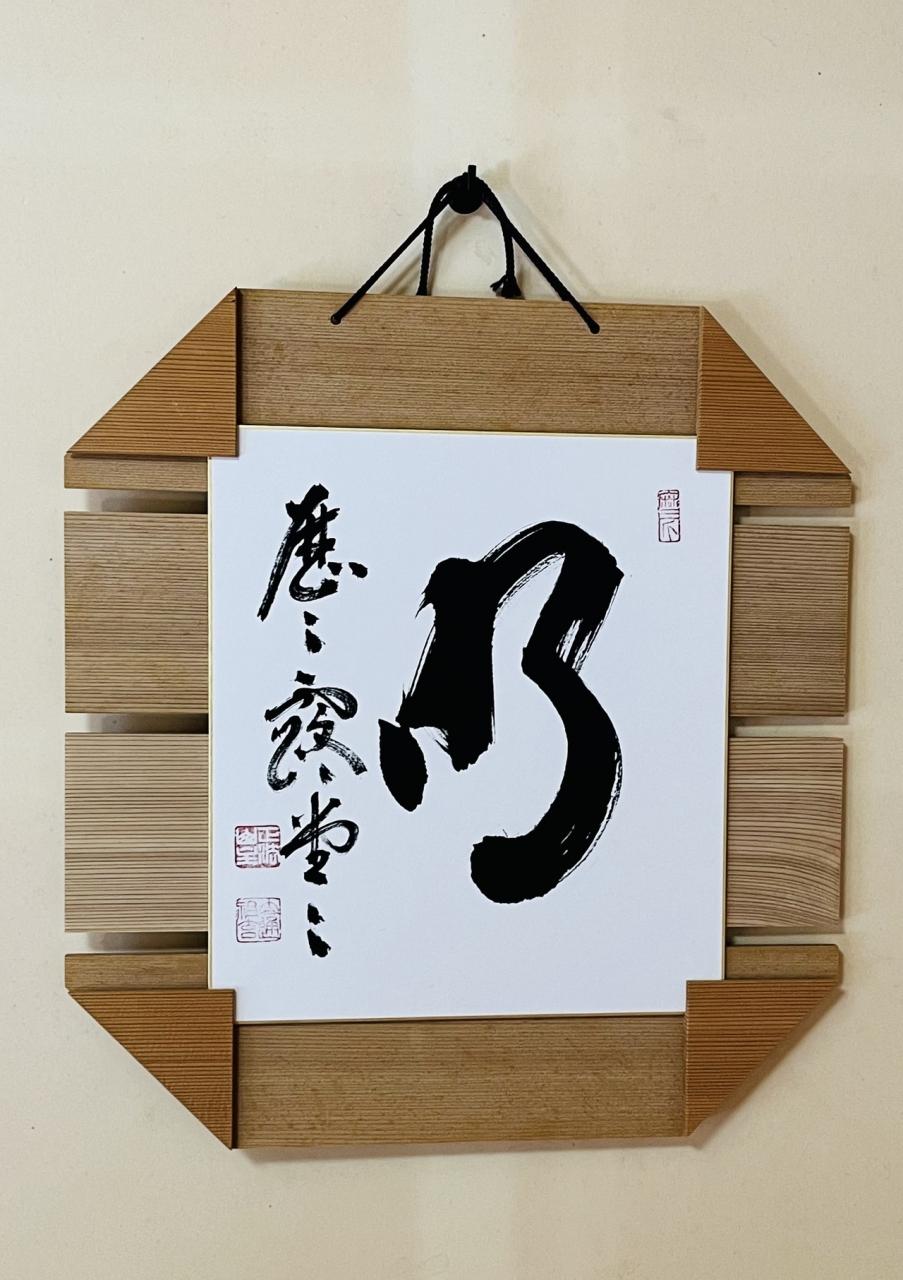 明
歴々露堂々